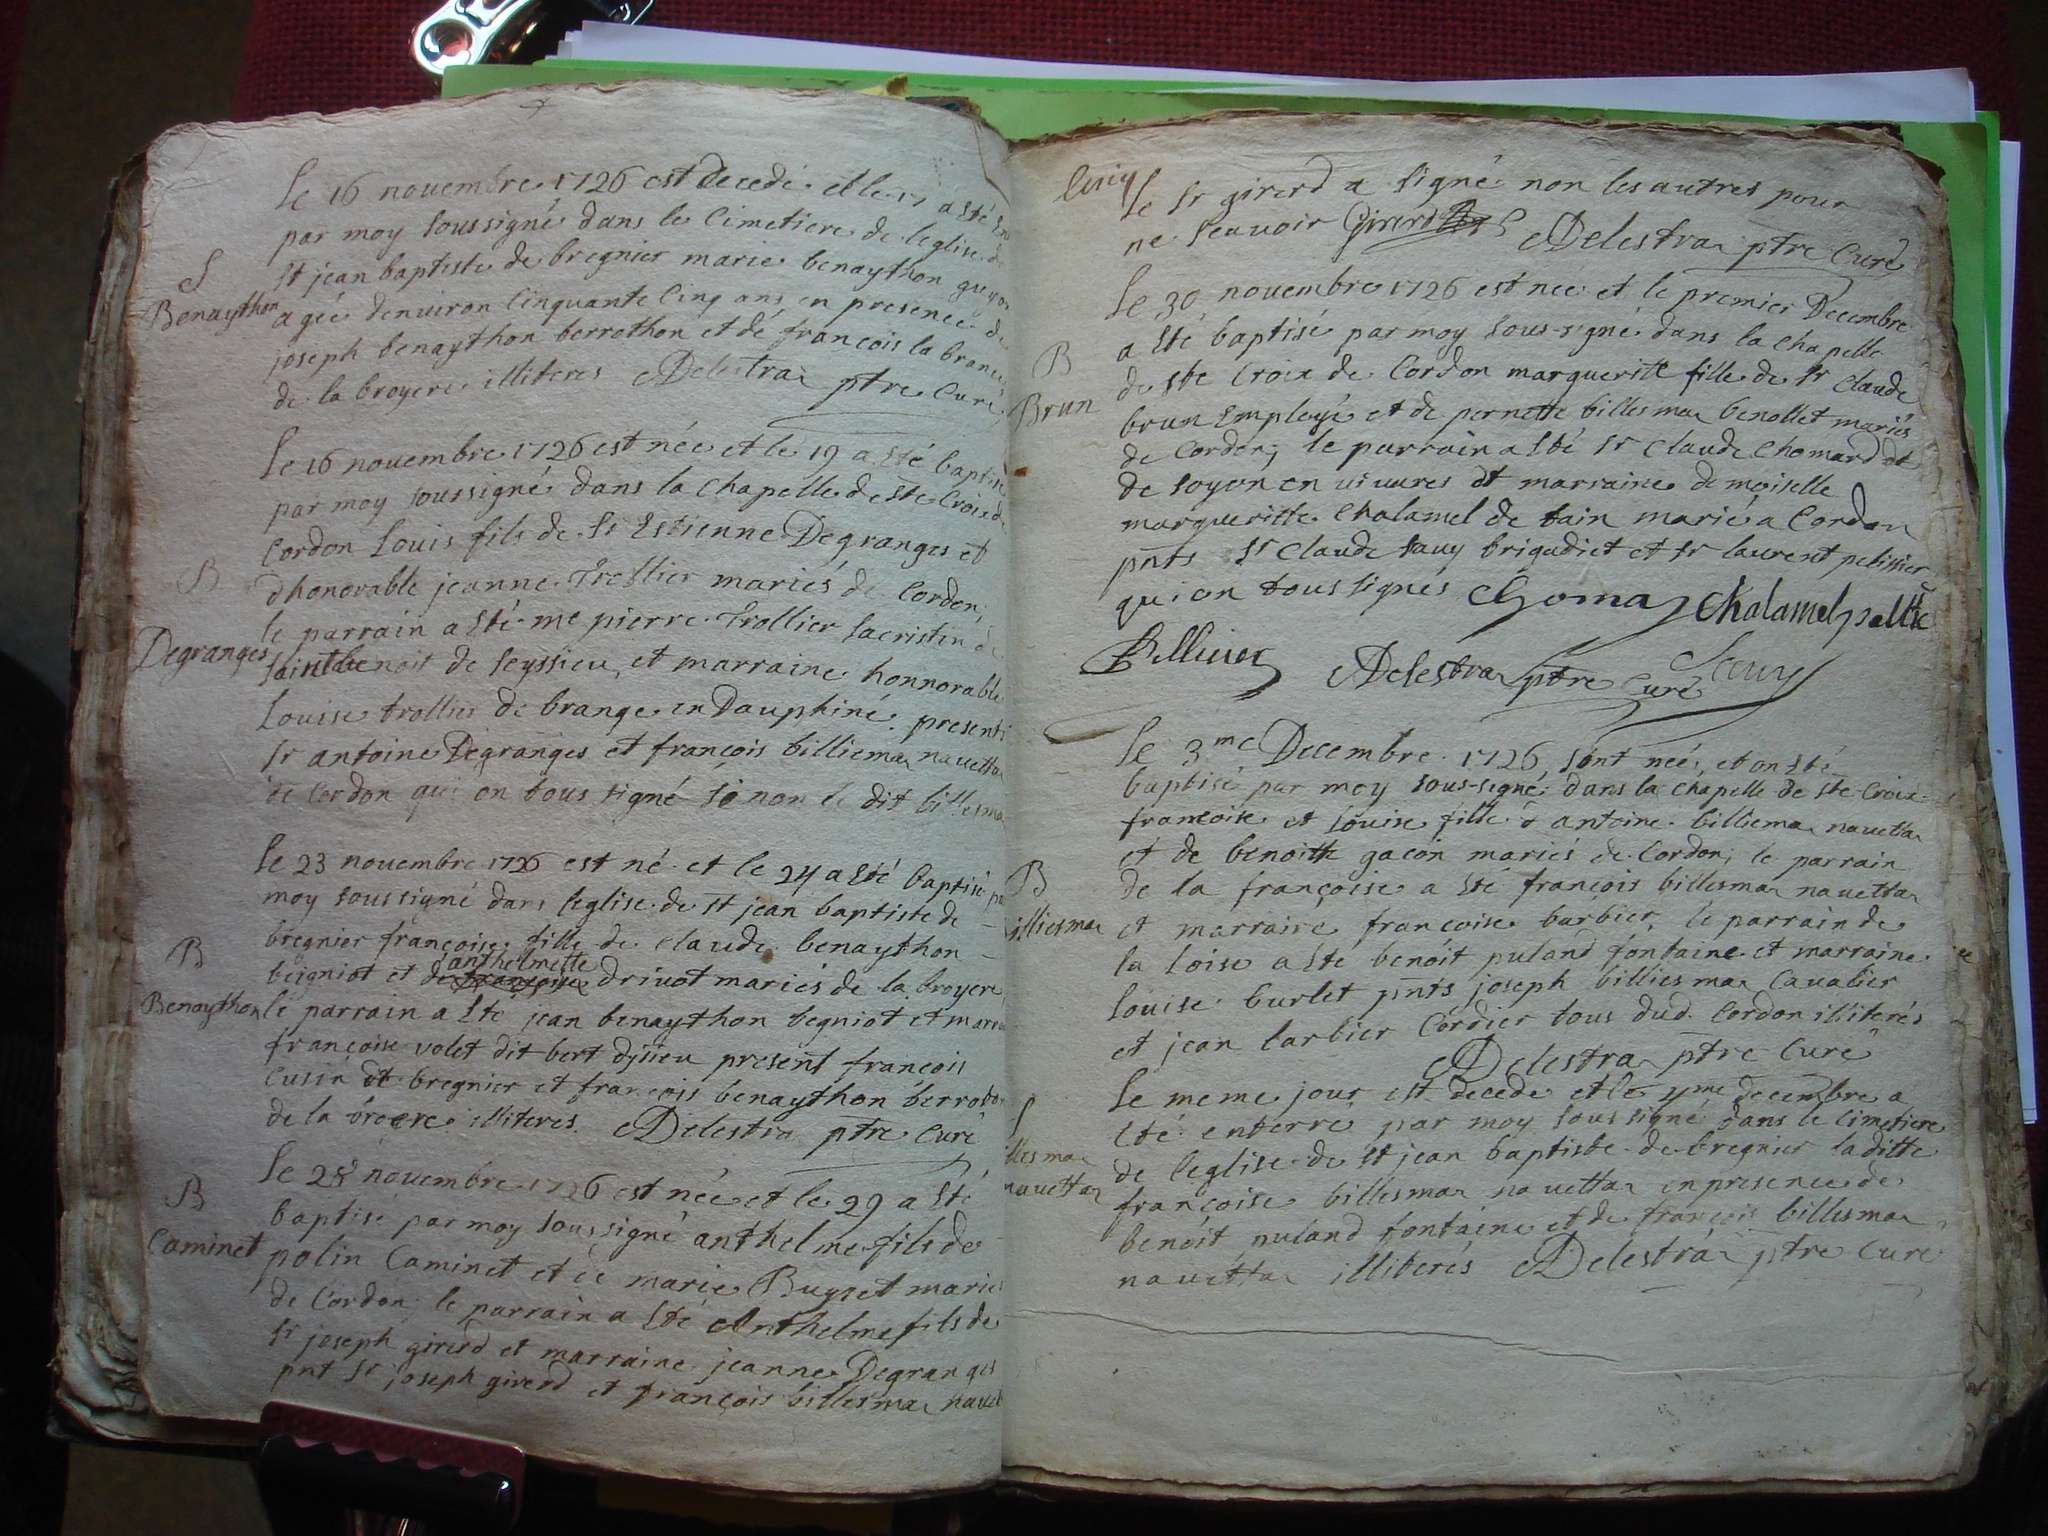 Le 16 novembre 1726 est decedé et le 17 a sté
par moy soussigné dans le cimetiere de leglise de
S
St jean baptiste de bregnier marie benaython guyon
Benaython
agée denviron cinquante cinq ans en presence de
joseph benaython berrothon et dé françois la
de la broyere illiteres Delestraz ptre Curé
Le 16 novembre 1726 est née et le 19 a sté baptisé
par moy soussigné dans la chapelle de ste Croix de
Cordon Louis fils de Sr Estienne Degranges et
B
dhonorable jeanne Trollier mariés de Cordon;
Degranges
le parrain a sté me pierre Trollier sacristin de
saint benoit de seyssieu, et marraine honnorable
Louise trollier de brange en Dauphiné. presents
Sr antoine Degranges et françois billiemaz navettaz
de Cordon qui on tous signé si non le dit billiesmaz
Le 23 novembre 1726 est né et le 24 a sté baptisé par
moy soussigné dans leglise de st jean baptiste de
bregnier françoise fille de claude benaython
B
anthelmette
begniot et de françoise drivot mariés de la broyere
Benaython
le parrain a sté jean benaython begniot et marraine
françoise volet dit bert present françois
Cusin dt bregnier et françois benaython berroton
de la broere illiteres. Delestraz ptre Curé
Le 28 novembre 1726 est née et le 29 a sté
B
baptisé par moy soussigné anthelme fils de
Caminet
polin Caminet et de marie Buyset mariés
de Cordon; le parrain a sté Anthelme fils de
Sr joseph girerd et marraine jeanne Degranges
pnt Sr joseph girerd et françois billesmaz navettaz
Le Sr girerd a signé non les autres pour
ne scavoir Girerd Delestraz ptre Curé
Le 30 novembre 1726 est nee et le premier Decembre
a sté baptisé par moy sous-signé dans la chapelle
B
de ste Croix de Cordon margueritte fille de Sr claude
Brun
brun Employé et de pernette billesmaz benollet mariés
de Cordon; le parrain a sté Sr claude Chomard dt
de soyon en vivares et marraine demoiselle
margueritte Chalamel de tain marié a Cordon
pnts Sr claude sauy brigadiet et Sr laurent pelissier
qui on tous signés Chomaz Chalamel
Sauy
Delestraz ptre Curé
Le 3me Decembre 1726 sont née, et on sté
baptisé par moy sous-signé dans la chapelle de ste Croix
francoise et Louise fille d antoine billiemaz navettaz
et de benoitte gacon mariés de Cordon; le parrain
B
de la françoise a sté françois billesmaz navettaz
billiesmaz
et marraine francoise barbier, le parrain de
la Loise a sté benoit puland fontaine et marraine
Louise burlet pnts joseph billiesmaz Cavalier
et jean barbier Cordier tous dud. Cordon illiterés
Delestraz ptre Curé
Le meme jour est decede et le 4me decembre a
S
été enterré par moy soussigné dans le Cimetiere
billesmaz
de leglise de st jean baptiste de bregnier laditte
navettaz
françoise billesmaz navettaz en presence de
benoit puland fontaine et de françois billesmaz
navettaz illiterés Delestraz ptre Curé